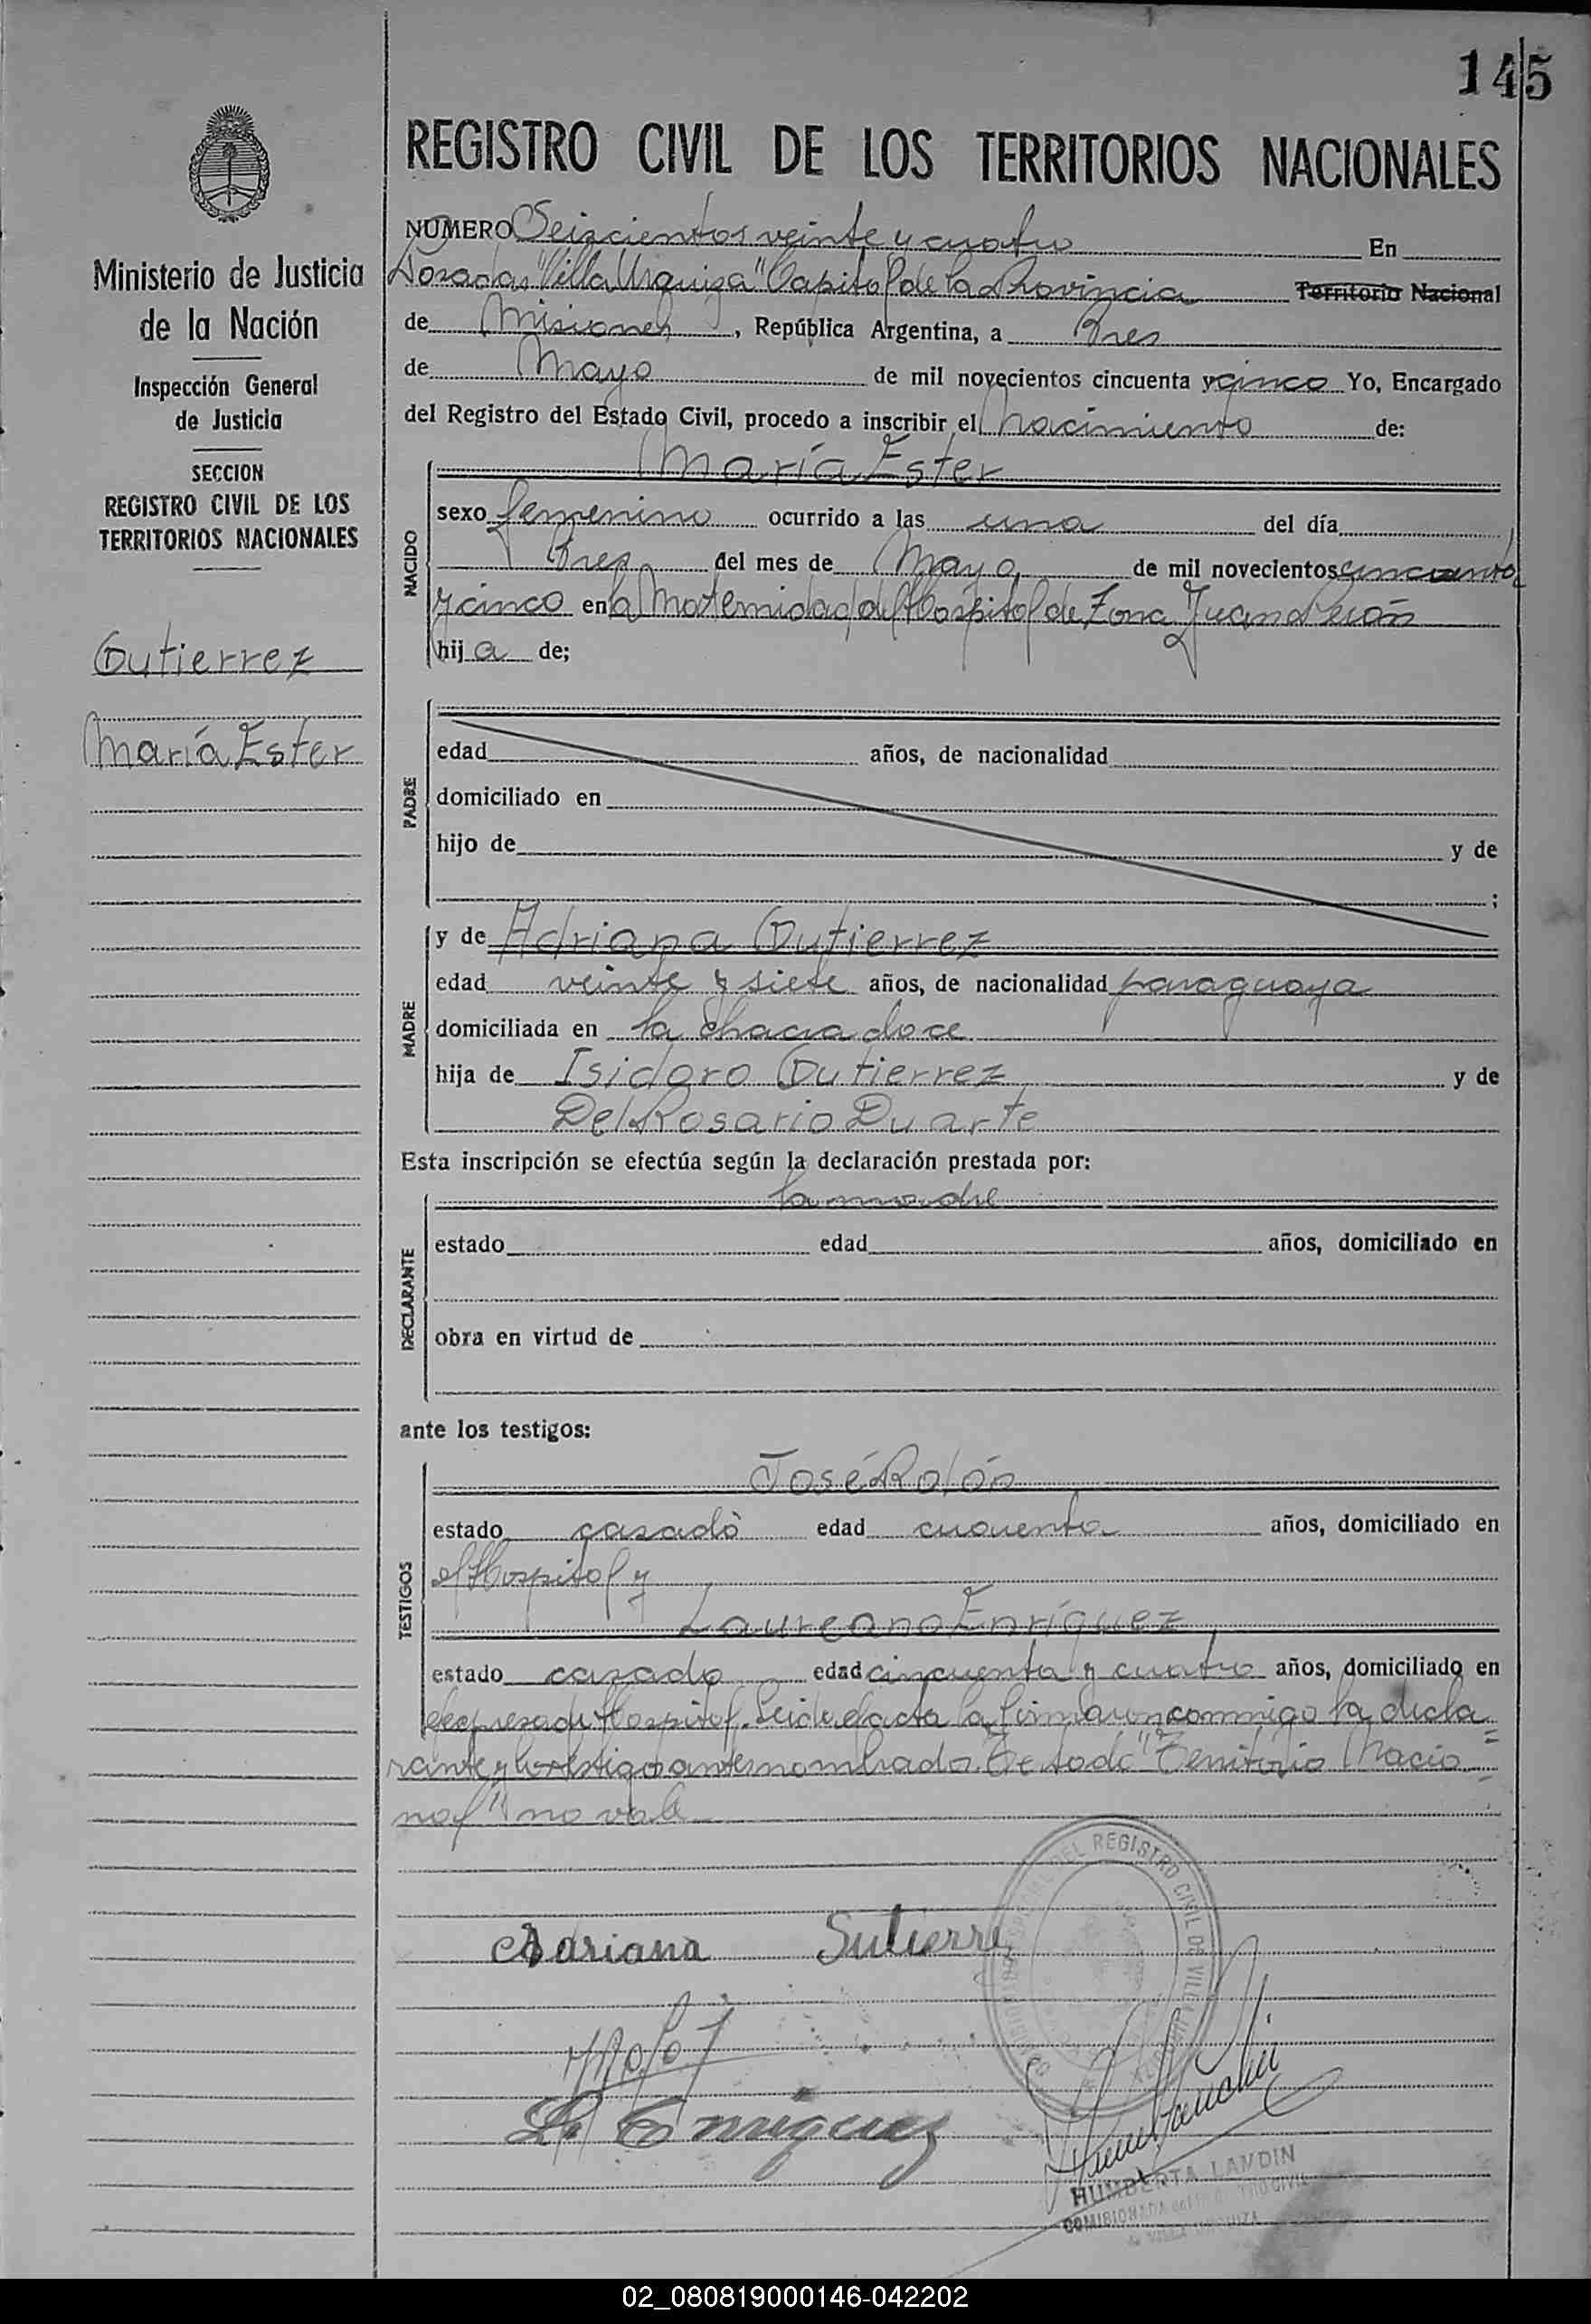 145
REGISTRO CIVIL DE LOS TERRITORIOS NACIONALES
Ministerio de Justicia
de la Nación
Inspección General
de Justicia
SECCION
REGISTRO CIVIL DE LOS
TERRITORIOS NACIONALES
Gutierrez
María Ester
NUMERO Seiscientos veinte y cuatro En
Posadas "Villa Urquiza" Capital de la Provincia Territorio Nacional
de Misiones, República Argentina, a Tres
de Mayo de mil novecientos cincuenta y cinco Yo, Encargado
del Registro del Estado Civil, procedo a inscribir el Nacimiento de:
María Ester
NACIDO
sexo femenino ocurrido a las una del día
Tres del mes de Mayo de mil novecientos cincuenta
y cinco en la Maternidad del Hospital de Zona Juan Perón
hija de;
PADRE
edad años, de nacionalidad
domiciliado en
hijo de y de
;
MADRE
y de Adriana Gutierrez
edad veinte y siete años, de nacionalidad paraguaya
domiciliada en la Chacra doce
hija de Isidoro Gutierrez y de
Del Rosario Duarte
Esta inscripción se efectúa según la declaración prestada por:
la madre
DECLARANTE
estado edad años, domiciliado en
obra en virtud de
ante los testigos:
TESTIGOS
José Rolón
estado casado edad cuarenta años, domiciliado en
el Hospital y
Laureano Enríquez
estado casado edad cincuenta y cuatro años, domiciliado en
el expresado Hospital. Leida el acta la firmaron conmigo la decla=
rante y los testigos antes nombrados. Testado "Territorio Nacio=
nal" no vale
Adriana Gutierre
L. Enriquez
DEL REGISTRO CIVIL DE VILLA URQUIZA
HUMBERTA LANDIN
COMISIONADA del REGISTRO CIVIL
de VILLA URQUIZA
02_080819000146-042202